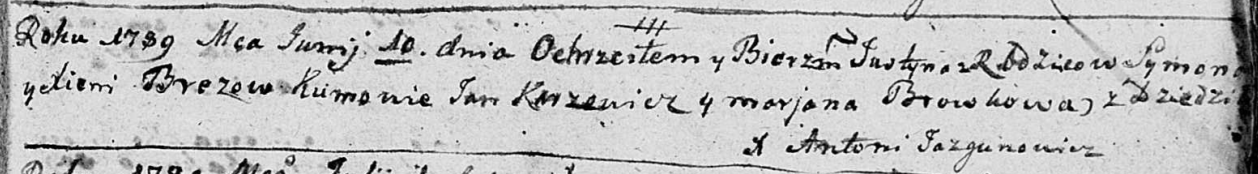 Roku 1789 Mca Junij 10. dnia Ochrzciłem y Bierzm Justyna z Rodzicow Symona
y Xieni Brezow Kumowie Jan Kurzewicz y marjana Browkowa z Dziedzi
X Antoni Jazgunowicz
Roku 1789 Mca